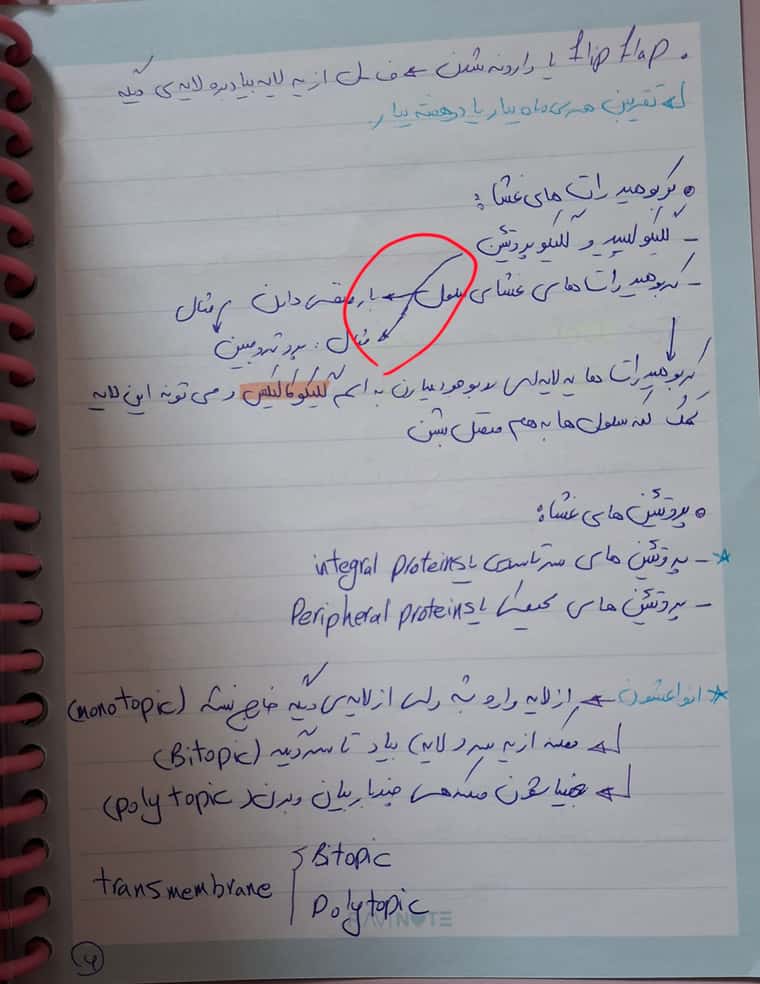 • flip flap یا وارونه شدن ← ف ل از یه لایه بیاد بره لایه ی دیگه
↳ تقریبن هر ی ماه یبار یا در هفته یبار.
• کربوهیدرات های غشا:
- گلیکولیپید و گلیکوپروتئین
- کربوهیدرات های غشای سلول ← بار منفی دارن
مثال: پروترومبین
کربوهیدرات ها یه لایه ای به وجود میارن به اسم گلیکوکالیکس و می تونه این لایه
کمک کنه سلول ها به هم متصل بشن
• پروتئین های غشا:
* - پروتئین های سرتاسری یا integral proteins
- پروتئین های محیطی یا Peripheral proteins
* انواعشون ← از لایه وارد بشه ولی از لایه ی دیگه خارج نشه (monotopic)
↳ ممکنه از یه سر لایه بیاد تا سر دیگه (Bitopic)
↳ بعضیاشون ممکنه هی چندبار بیان و برن (polytopic)
transmembrane
Bitopic
Polytopic
NOTE
۴